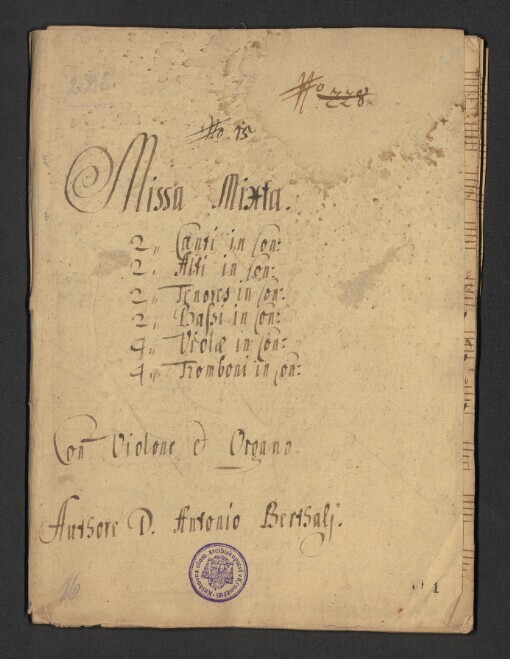 No 228.
No. 15
Missa Mixta.
2„ Canti in Con:
2. Alti in Con:
2„ Tenores in Con:
2„ Bassi in Con:
4„ Violæ in Con:
4„ Tromboni in Con:
Con Violone et Organo.
Authore D. Antonio Berthali.
16
1